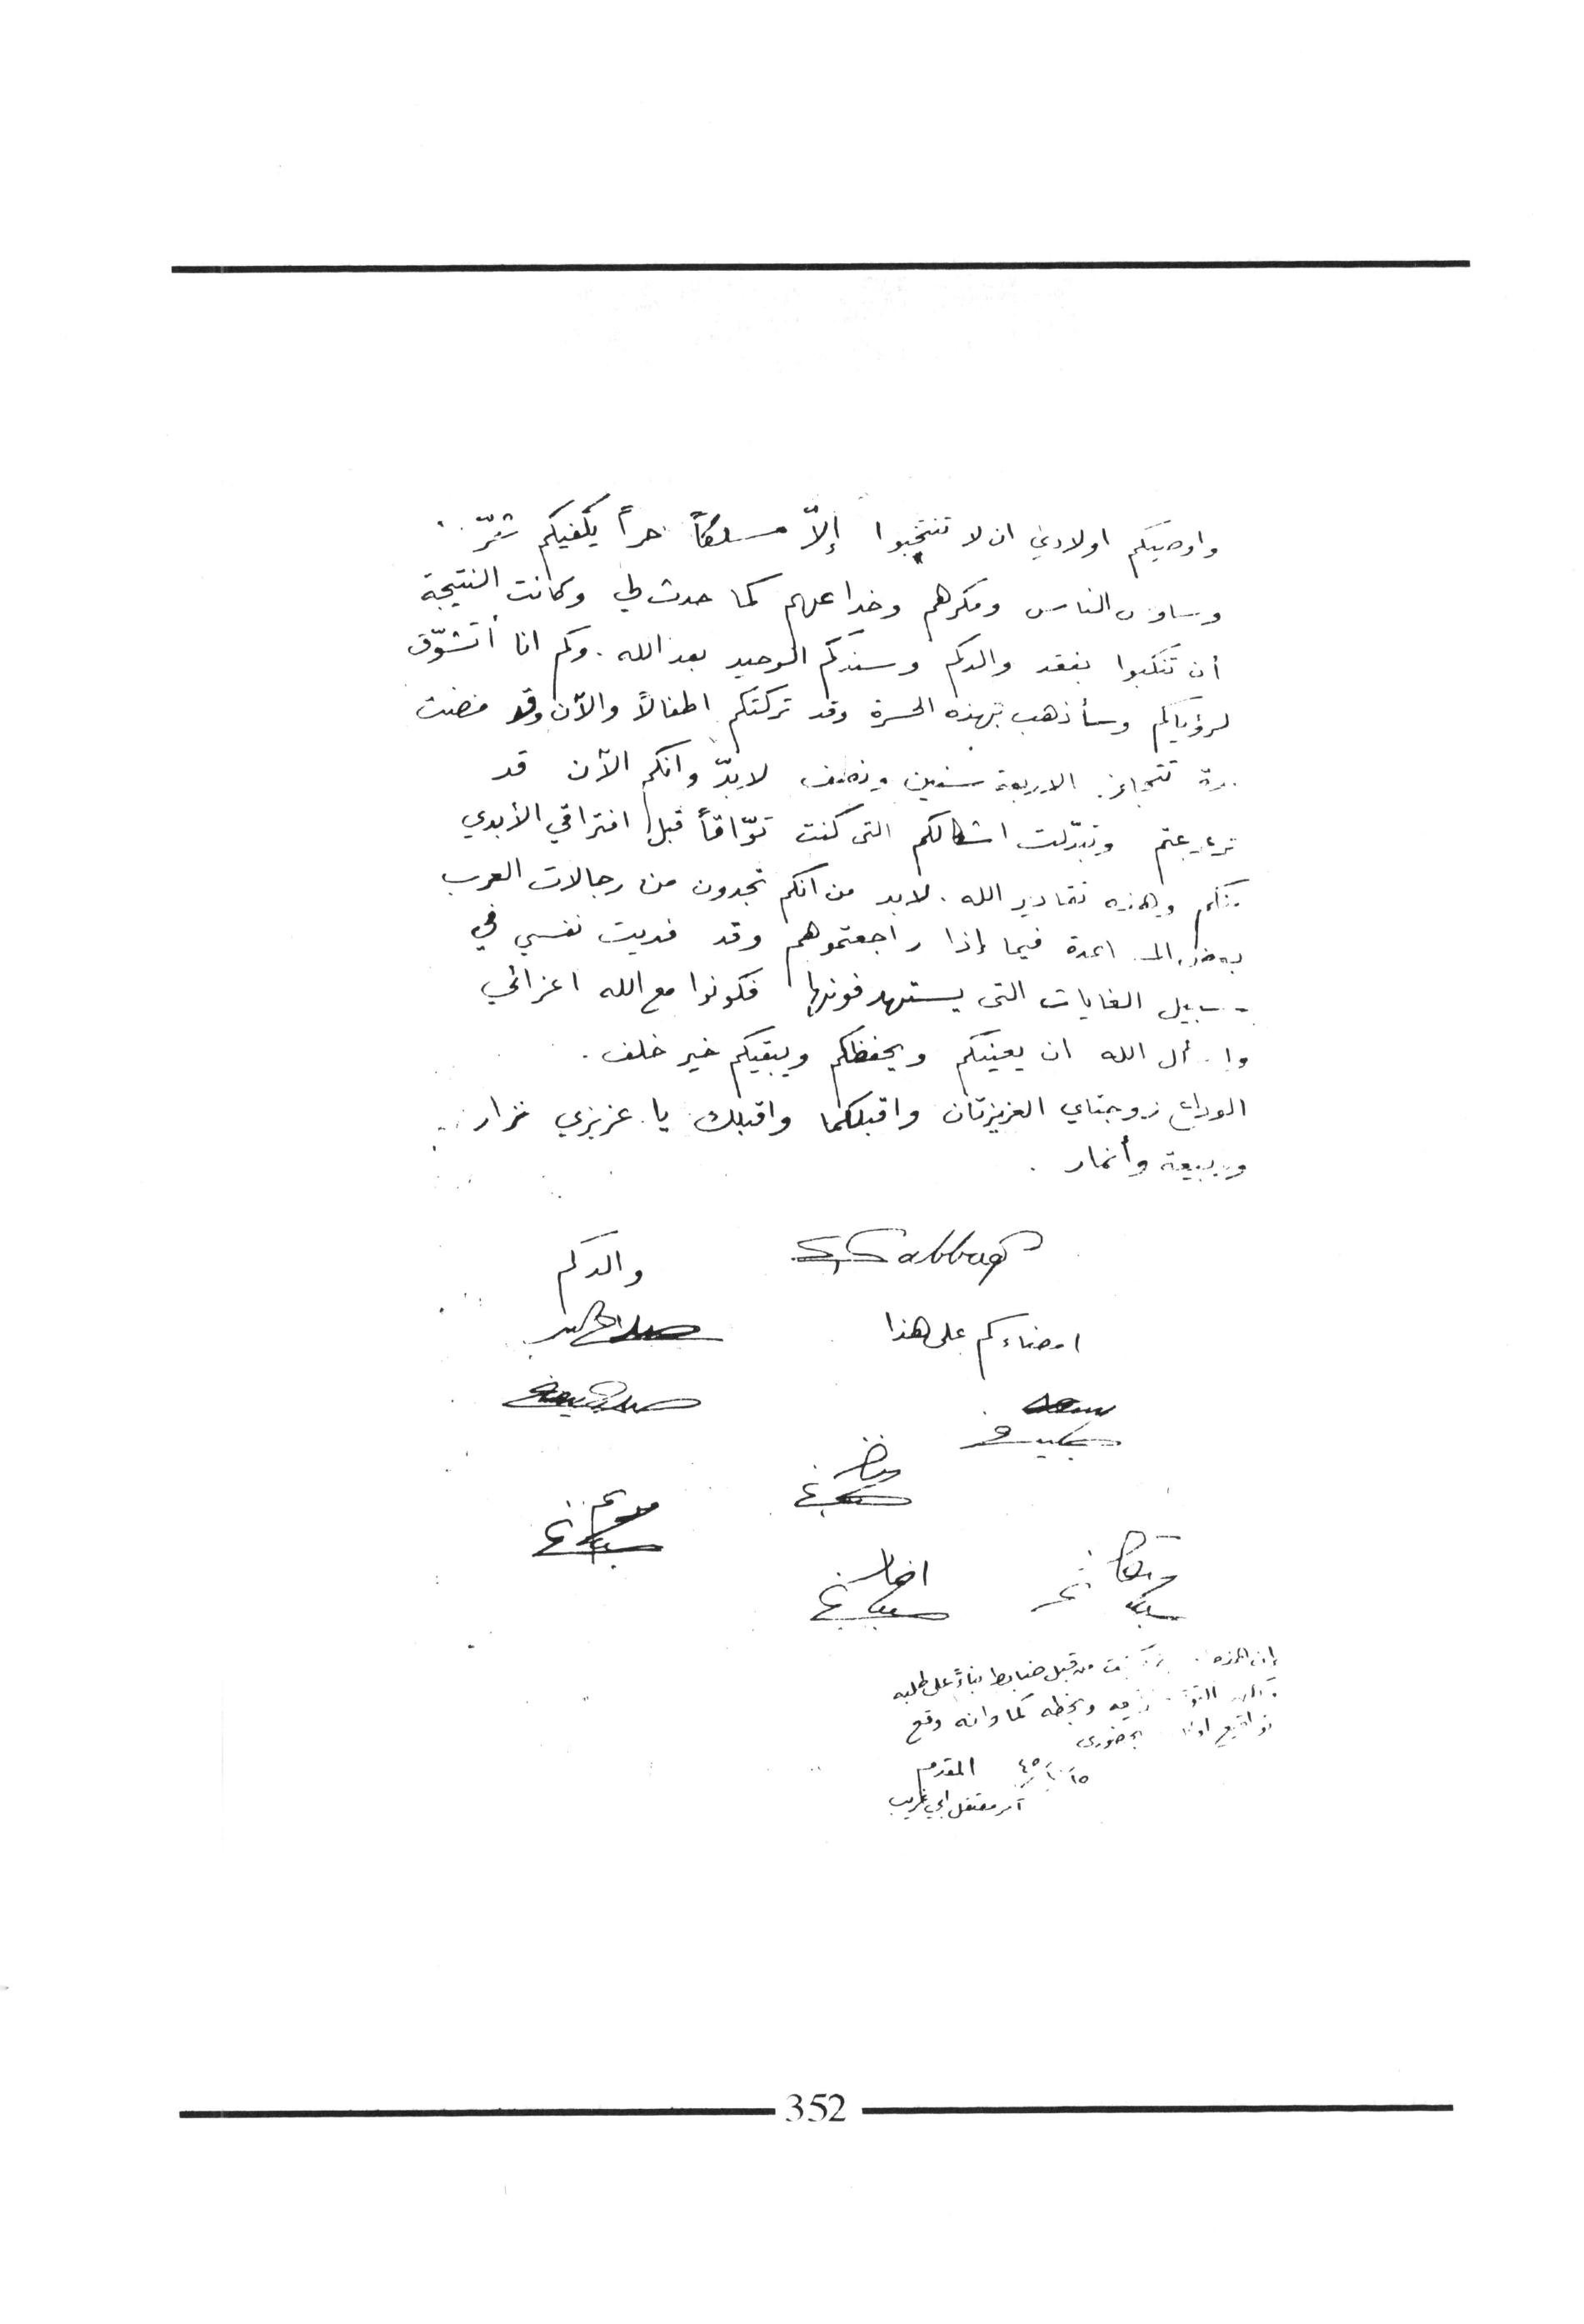 واوصيكم اولادي ان لا تنتخبوا إلاّ مسلكاً حراً يكفيكم شرّ
وساوس الناس ومكرهم وخداعهم كما حدث لي وكانت النتيجة
أن تنكبوا بفقد والدكم وسندكم الوحيد بعد الله. وكم انا أتشوّق
لرؤياكم وسأذهب بهذه الحسرة وقد تركتكم اطفالاً والآن وقد مضت
مدة تتجاوز الاربعة سنين ونصف لابدّ وانكم الآن قد
ترعرعتم وتبدّلت اشكالكم التى كنت توّاقاً قبل افتراقي الأبدي
منكم وهذه تقادير الله. لابد من انكم تجدون من رجالات العرب
بعض المساعدة فيما إذا راجعتموهم وقد فديت نفسي في
سبيل الغايات التى يستهدفونها فكونوا مع الله اعزائي
واسأل الله ان يعينكم ويحفظكم ويبقيكم خير خلف.
الوداع زوجتاي العزيزتان واقبلكما واقبلك يا عزيزي نزار
وربيعة وأنمار.
S. Sabbag
والدكم
امضاءكم على هذا
صباغ
صباغ
صباغ
إن هذه من قبل ضابط بناءً على طلبه
وبخطه كما وانه وقع
تواقيع بحضوري
١٥/١٠/٤٥ المقدم
آمر معتقل ابي غريب
352